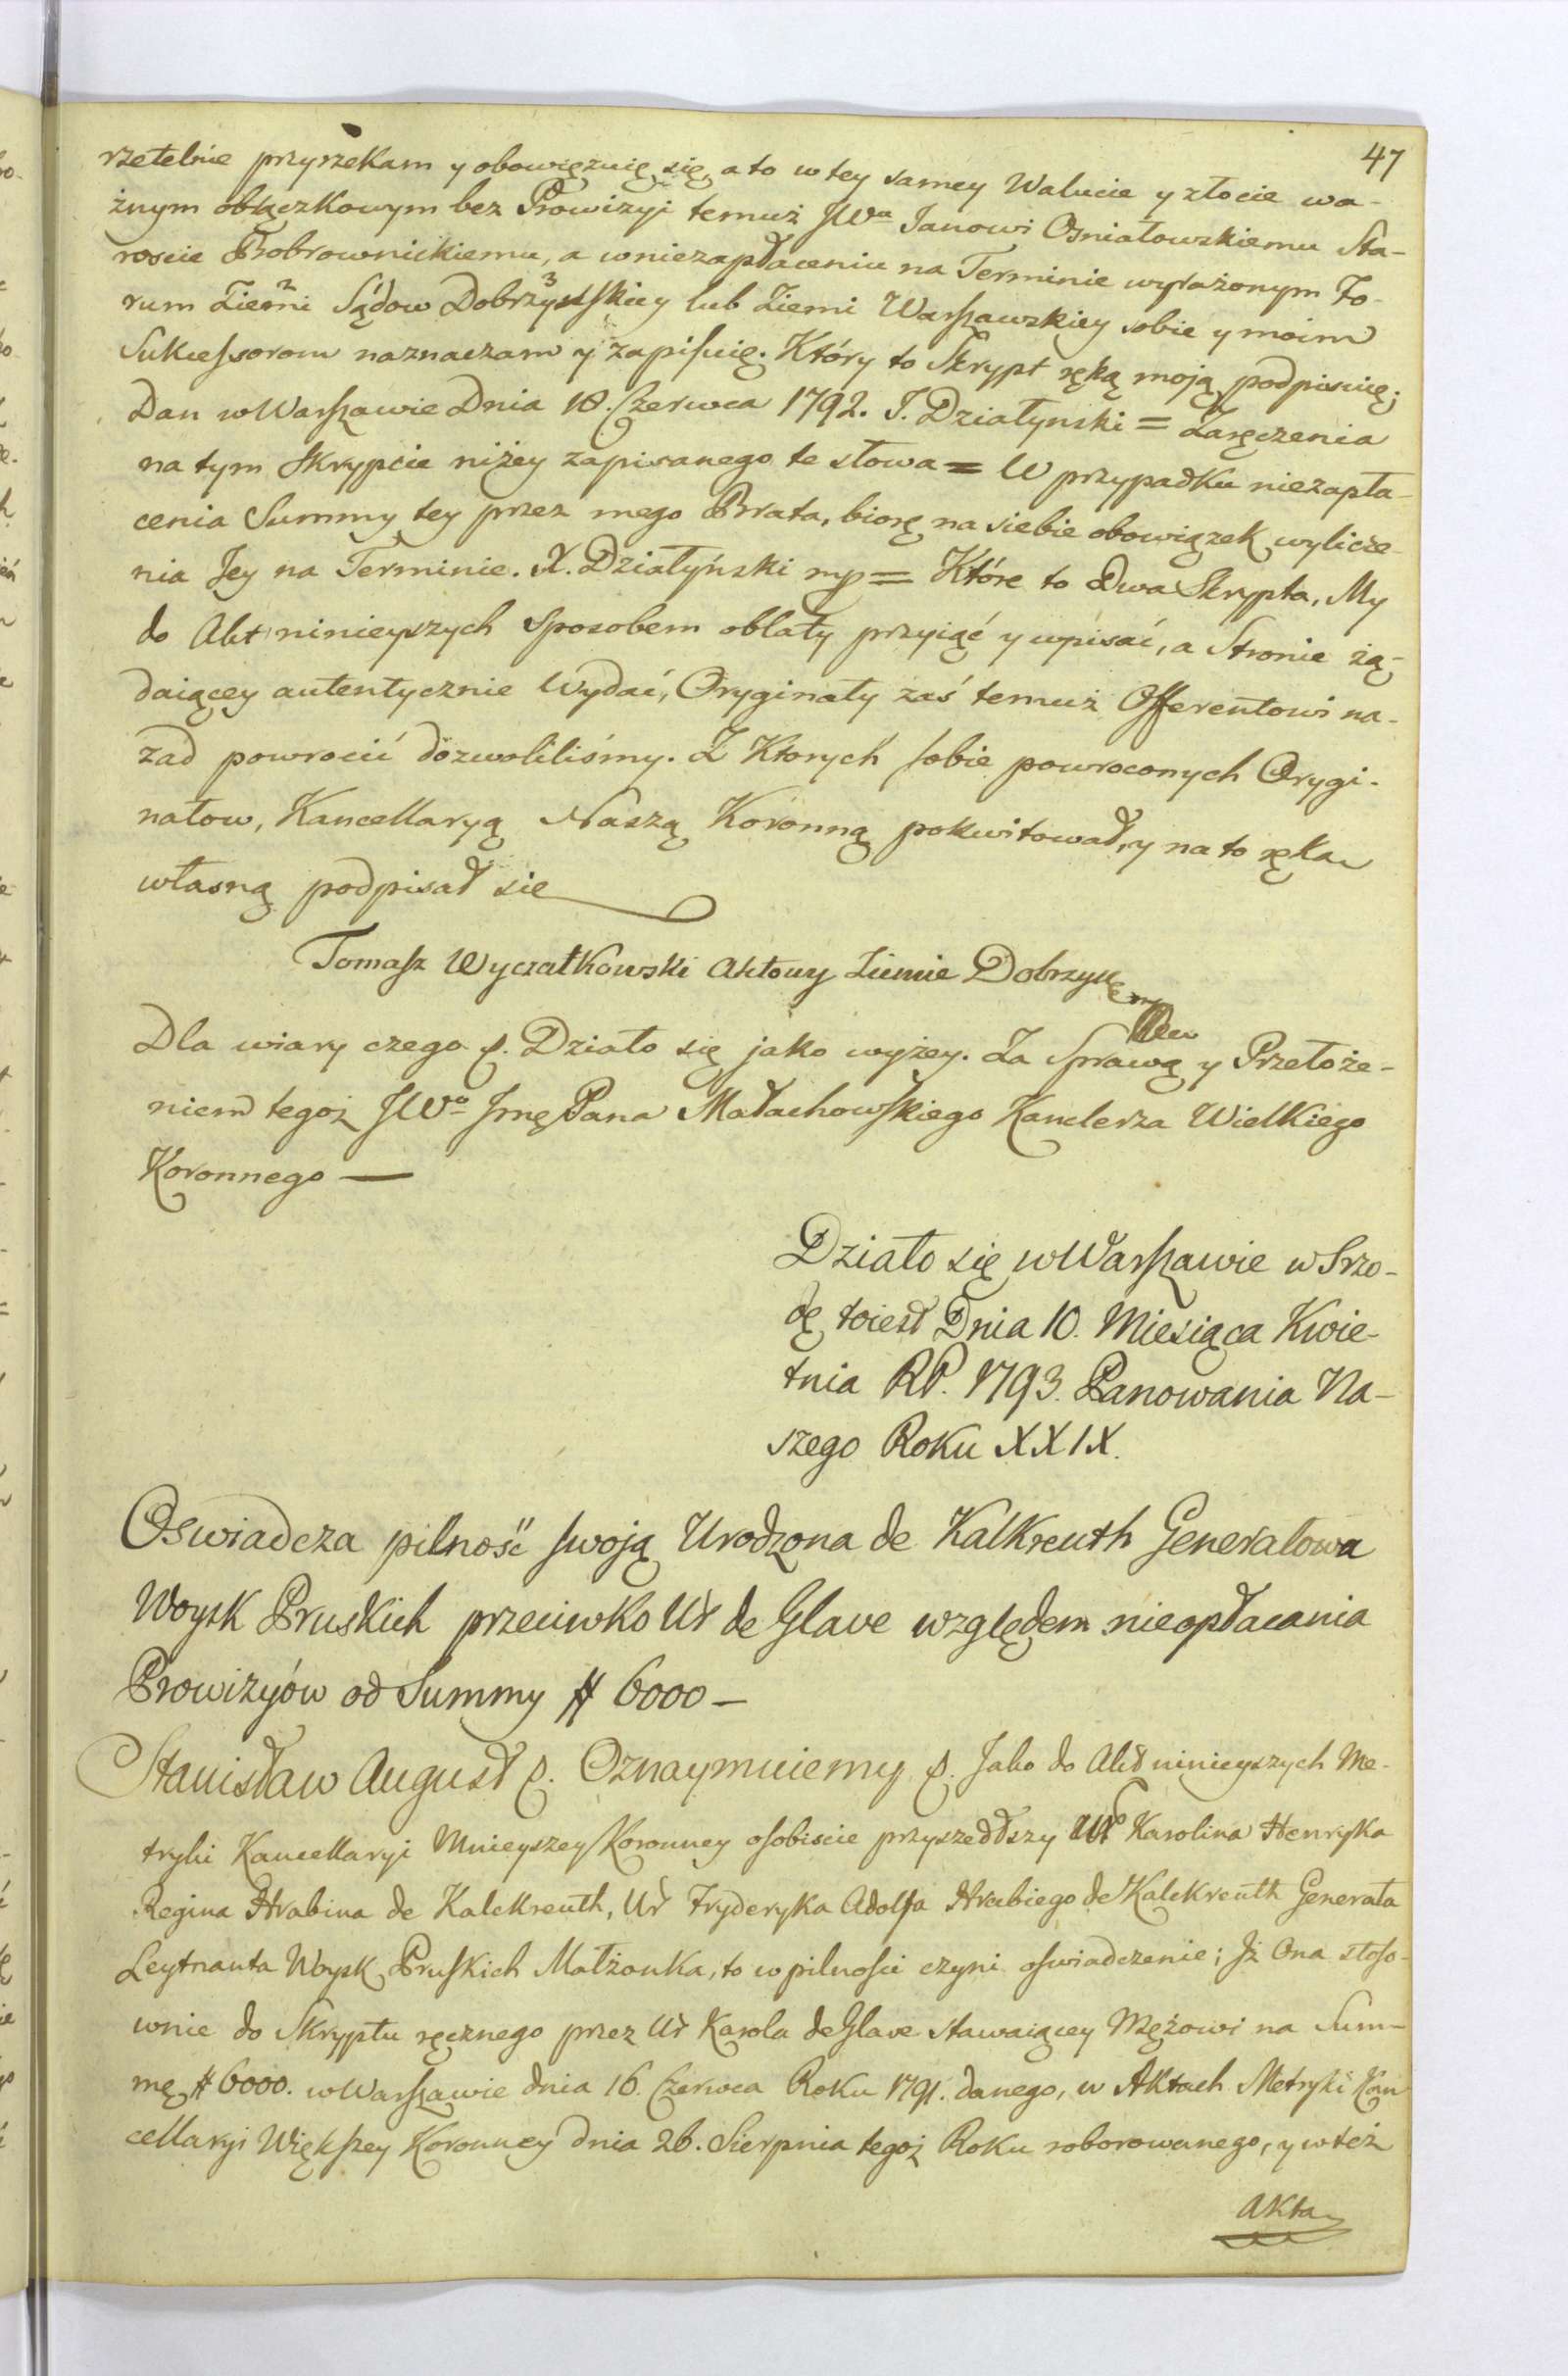 47
rzetelnie przyrzekam y obowięzuię się, a to w tey samey Walucie y złocie wa-
żnym obłączkowym bez Prowizyi temuż JWu Janowi Ośniałowskiemu Sta-
roscie Bobrownickiemu, a w niezapłaceniu na Terminie wyrażonym Fo-
rum Ziemi Sądow Dobrzyńskiey lub Ziemi Warszawskiey sobie y moim
Sukcessorom naznaczam y zapisuię. Który to Skrypt ręką moją podpisuię;
Dan w Warszawie Dnia 18. Czerwca 1792. J. Działynski = Zaręczenia
na tym Skrypcie niżey zapisanego te słowa = W przypadku niezapła-
cenia Summy tey przez mego Brata, biorę na siebie obowiązek wylicze-
nia Jey na Terminie. X. Działyński mp = Które to Dwa Skrypta, My
do Akt ninieyszych sposobem oblaty przyiąć y wpisać, a Stronie żą-
daiącey autentycznie wydać, Oryginały zaś temuż Offerentowi na-
zad powrocić dozwoliliśmy. Z Ktorych sobie powroconych Orygi-
nałow, Kancellaryą Naszą Koronną pokwitował, y na to ręką
własną podpisał się
Tomasz Wyczałkowski Aktowy Ziemie Dobrzyn
Dla wiary czego p. Działo się jako wyżey. Za Sprawą y Przełoże-
niem tegoż JWo Jmę Pana Małachowskiego Kanclerza Wielkiego
Koronnego —
Działo się w Warszawie w Srzo-
dę toiest Dnia 10. Miesiąca Kwie-
tnia RP. 1793. Panowania Na-
szego Roku XXIX.
Oswiadcza pilność swoją Urodzona de Kalkreuth Generałowa
Woysk Pruskich przeciwko Ur de Glave względem nieopłacania
Prowizyów od Summy # 6000 —
Stanisław August p. Oznaymuiemy p. Jako do Akt ninieyszych Me-
tryki Kancellaryi Mnieyszey Koronney osobiscie przyszedłszy Ur Karolina Henryka
Regina Hrabina de Kalckreuth, Ur Fryderyka Adolfa Hrabiego de Kalckreuth Generała
Leytnanta Woysk Pruskich Małżonka, to w pilności czyni oswiadczenie; Jż Ona stoso-
wnie do Skryptu ręcznego przez Ur Karola de Glave stawaiącey Mężowi na Sum-
mę # 6000. w Warszawie dnia 16. Czerwca Roku 1791. danego, w Aktach Metryki Kan
cellaryi Większey Koronney dnia 26. Sierpnia tegoż Roku roborowanego, y w też
Akta